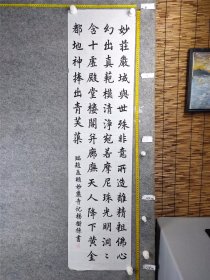 妙莊嚴域與世殊非意所造離精粗佛心
幻出真範模清淨宛若摩尼珠光明洞〻
含十虛殿堂樓閣升廊廡天人降下黃金
都地神捧出青芙蕖
臨趙孟頫妙嚴寺記楊樹鋒書